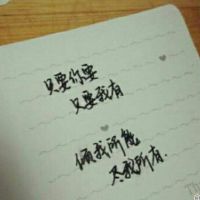 只要你要
只要我有
倾我所能
尽我所有.